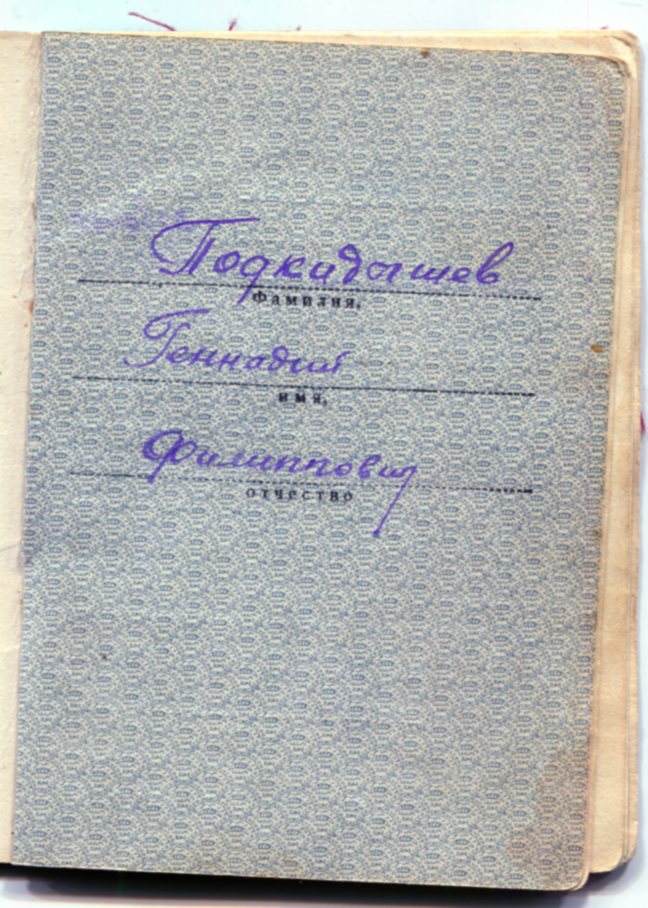 Подкидышев
Фамилия,
Геннадий
имя,
Филиппович
отчество